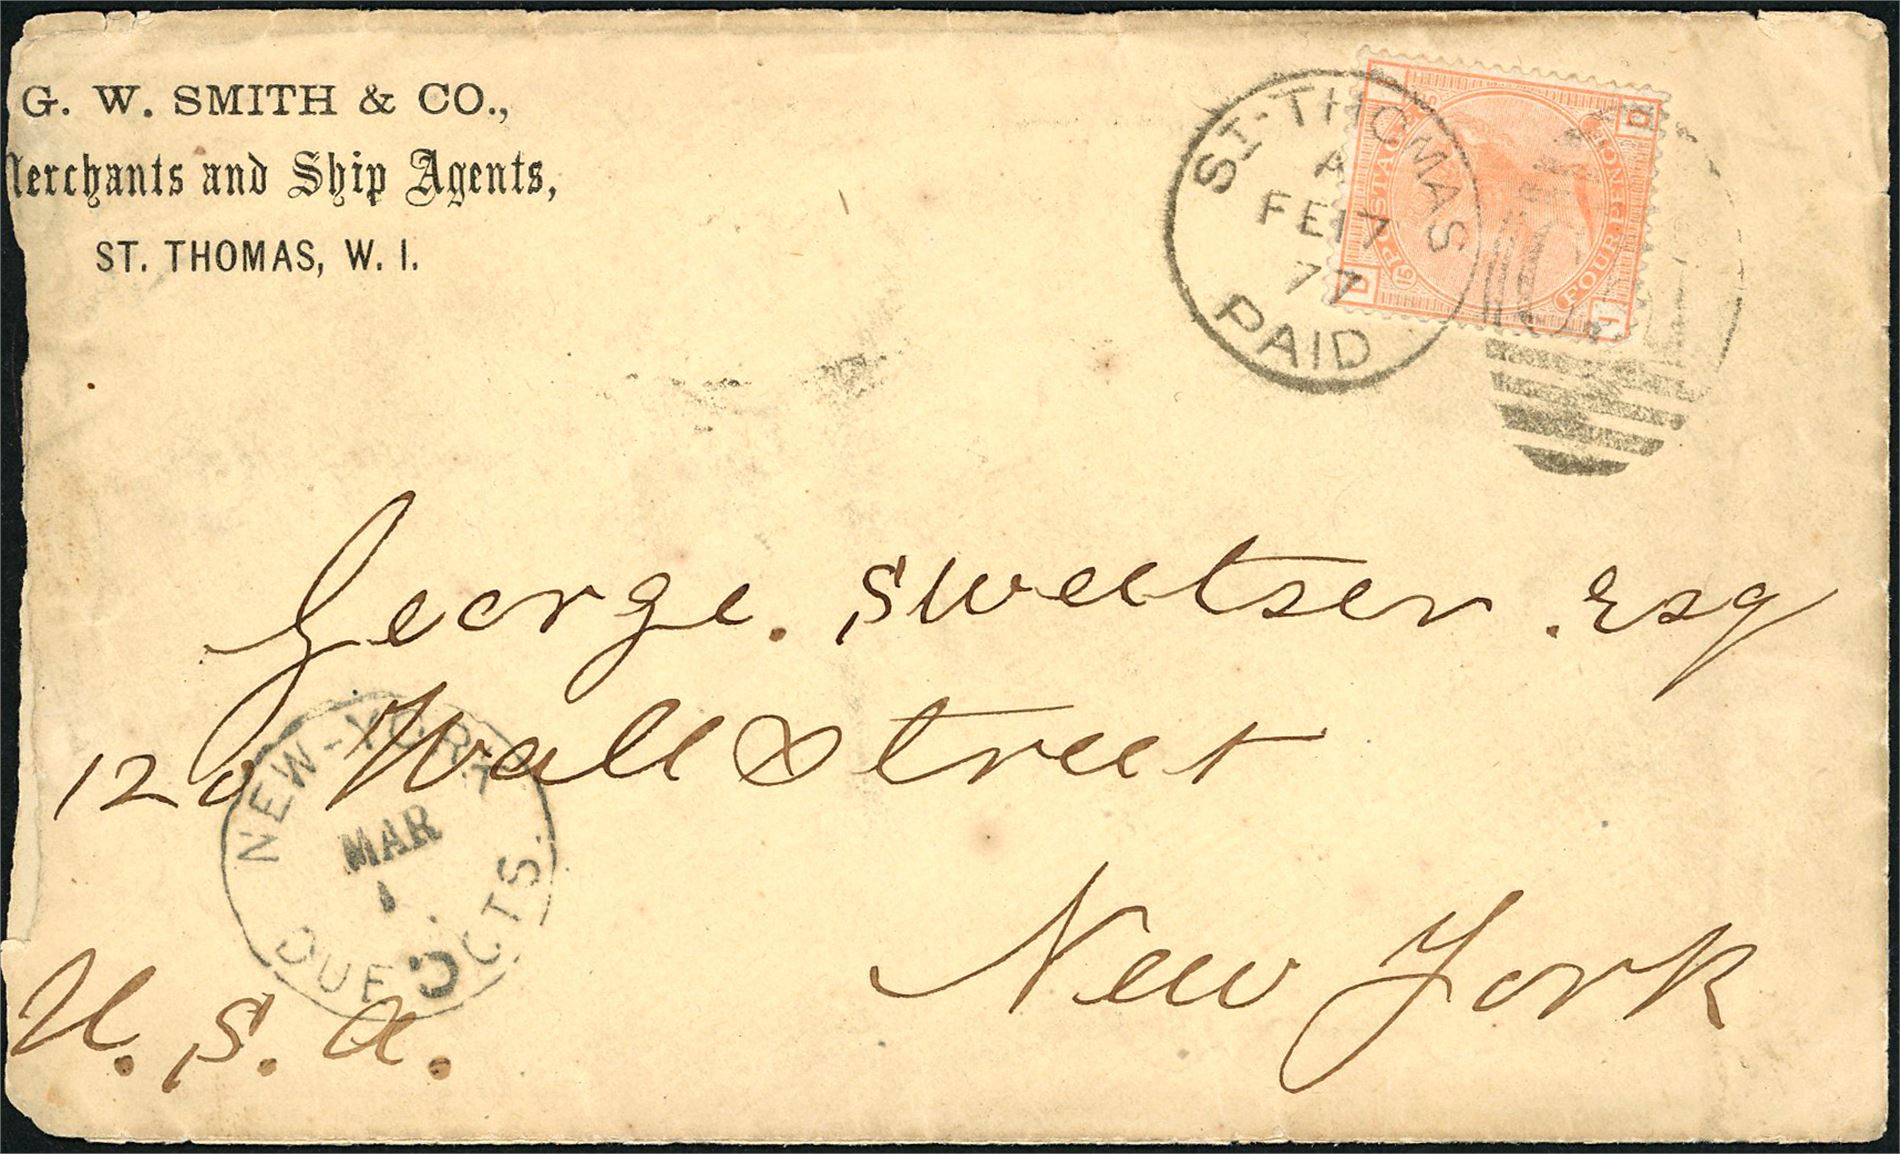 G. W. SMITH & CO.,
Merchants and Ship Agents,
ST. THOMAS, W. I.
ST-THOMAS
A
FE17
77
PAID
POSTAGE
FOUR PENCE
15
D
D
C51
George. Sweetser. Esq
120 Wall Street
New York
U. S. A.
NEW-YORK
MAR
1
DUE 5 CTS.